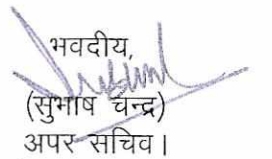 भवदीय,
(सुभाष चन्द्र)
अपर सचिव।